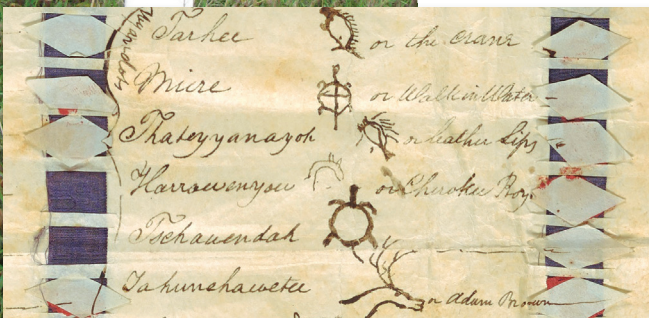 Wyandots
Tarhee or the Crane
Miere or Walk in Water
Thateyyanayoh or Leather Lips
Harrowenyou or Cherokee Boy
Tschauendah
Tahunehawetee or Adam Brown